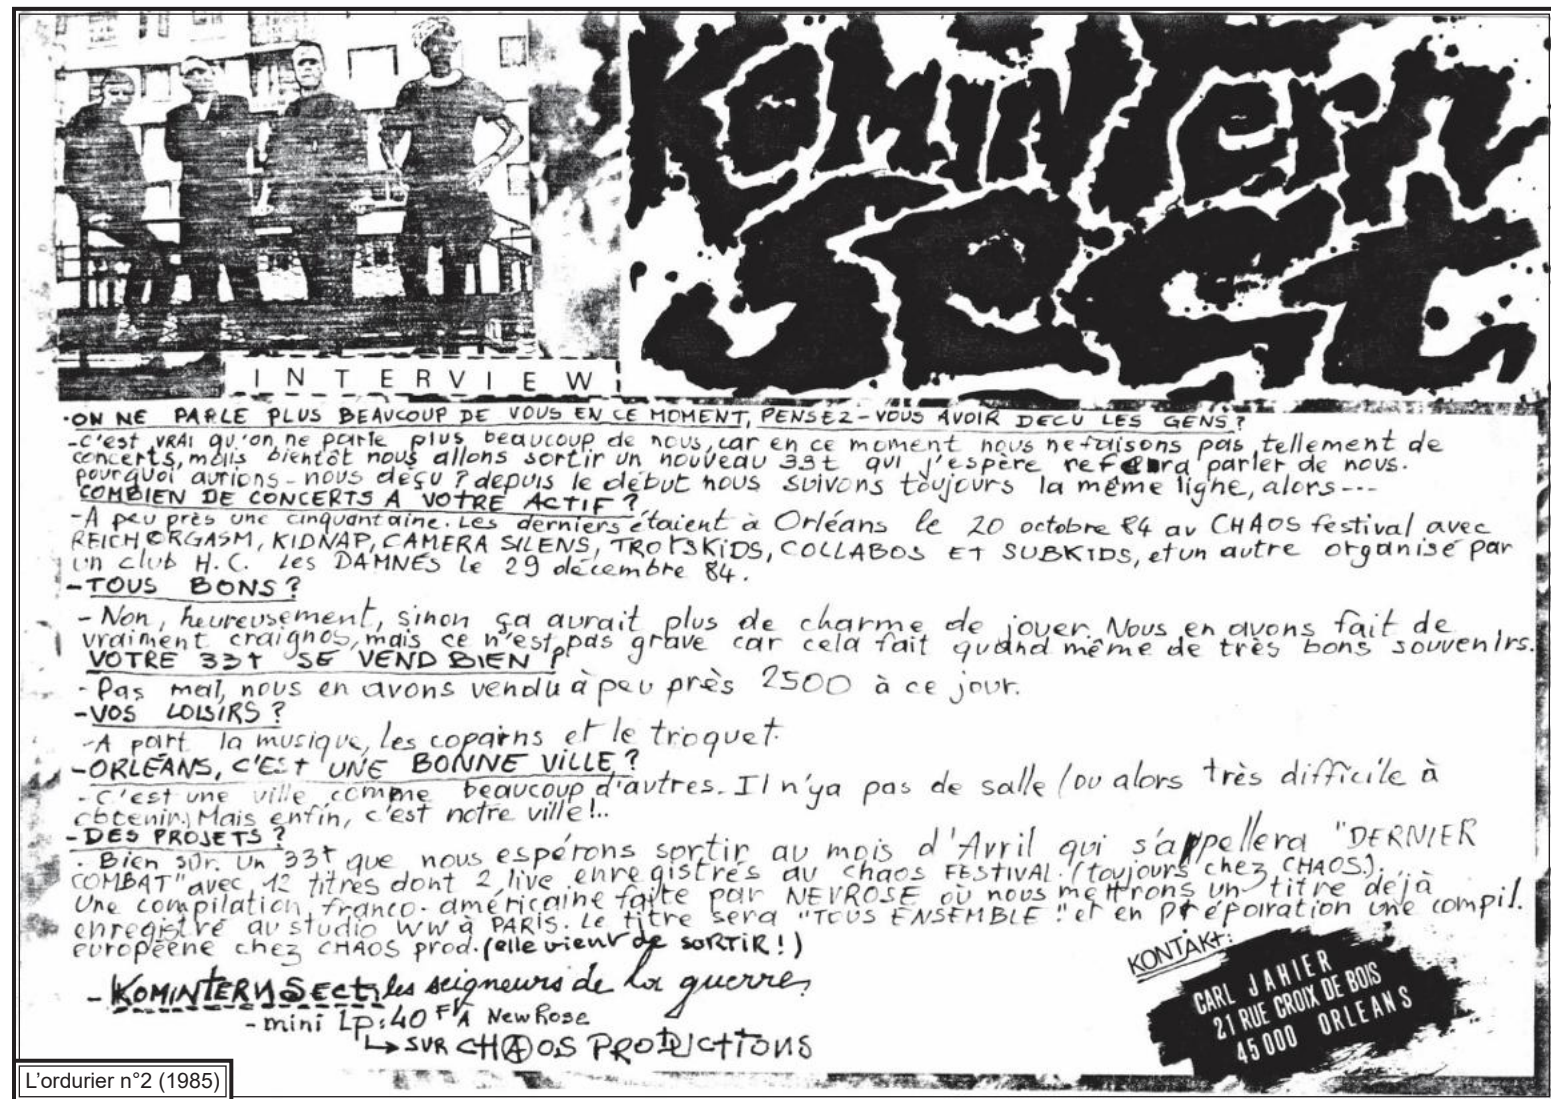 KOMINTERN
SECT
INTERVIEW
·ON NE PARLE PLUS BEAUCOUP DE VOUS EN CE MOMENT, PENSEZ-VOUS AVOIR DECU LES GENS?
-C'est vrai qu'on ne parle plus beaucoup de nous, car en ce moment nous ne faisons pas tellement de
concerts, mais bientôt nous allons sortir un nouveau 33t qui j'espère refera parler de nous.
pourquoi aurions-nous deçu? depuis le début nous suivons toujours la même ligne, alors---
COMBIEN DE CONCERTS A VOTRE ACTIF?
-A peu près une cinquantaine. Les derniers étaient à Orléans le 20 octobre 84 au CHAOS festival avec
REICH ORGASM, KIDNAP, CAMERA SILENS, TROTSKIDS, COLLABOS ET SUBKIDS, et un autre organisé par
un club H.C. les DAMNÉS le 29 décembre 84.
-TOUS BONS?
- Non, heureusement, sinon ça aurait plus de charme de jouer. Nous en avons fait de
vraiment craignos, mais ce n'est pas grave car cela fait quand même de très bons souvenirs.
VOTRE 33t SE VEND BIEN?
- Pas mal, nous en avons vendu à peu près 2500 à ce jour.
-VOS LOISIRS?
-A part la musique, les copains et le troquet.
-ORLÉANS, C'EST UNE BONNE VILLE?
- C'est une ville comme beaucoup d'autres. Il n'ya pas de salle (ou alors très difficile à
obtenir.) Mais enfin, c'est notre ville!..
-DES PROJETS?
· Bien sûr. Un 33t que nous espérons sortir au mois d'Avril qui s'appellera "DERNIER
COMBAT" avec 12 titres dont 2 live enregistrés au chaos FESTIVAL. (toujours chez CHAOS).
Une compilation franco-américaine faite par NEVROSE où nous mettrons un titre déjà
enregistré au studio WW à PARIS. Le titre sera "TOUS ENSEMBLE!" et en préparation une compil.
européene chez CHAOS prod. (elle vient de SORTIR!)
- KOMINTERN SECT: les seigneurs de la guerre,
- mini Lp: 40 F à New Rose
↳ SUR CHAOS PRODUCTIONS
KONTAKT:
CARL JAHIER
21 RUE CROIX DE BOIS
45000 ORLEANS
L'ordurier n°2 (1985)